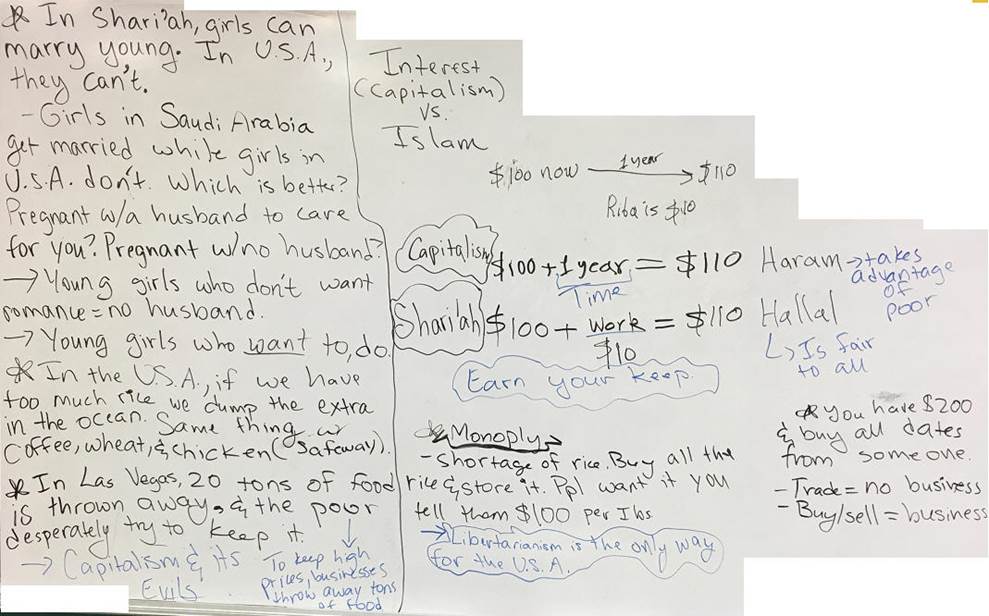 * In Shari'ah, girls can
marry young. In U.S.A.,
they can't.
- Girls in Saudi Arabia
get married while girls in
U.S.A. don't. Which is better?
Pregnant w/a husband to care
for you? Pregnant w/no husband?
→ Young girls who don't want
romance = no husband.
→ Young girls who want to, do.
* In the U.S.A., if we have
too much rice we dump the extra
in the ocean. Same thing w
Coffee, wheat, & chicken (Safeway).
* In Las Vegas, 20 tons of food
is thrown away, & the poor
desperately try to keep it.
→ Capitalism & its
Evils
To keep high
prices, businesses
throw away tons
of food
Interest
(Capitalism)
vs.
Islam
$100 now 1 year → $110
Riba is $10
Capitalism $100 + 1 year = $110 Haram → takes
Time
advantage
of
poor
Shari'ah $100 + work = $110 Hallal
$10
↳ Is fair
to all
Earn your keep.
* Monoply
- Shortage of rice. Buy all the
rice & store it. Ppl want it you
tell them $100 per lbs
→ Libertarianism is the only way
for the U.S.A.
* You have $200
& buy all dates
from someone.
- Trade = no business
- Buy/sell = business